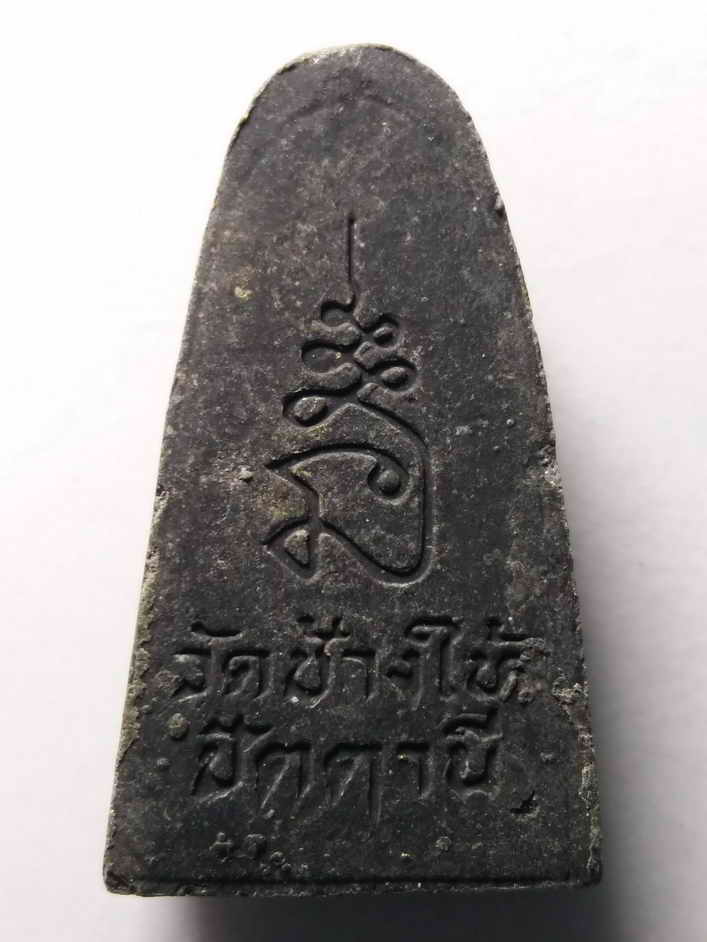 วัดช้างให้
ปัตตานี